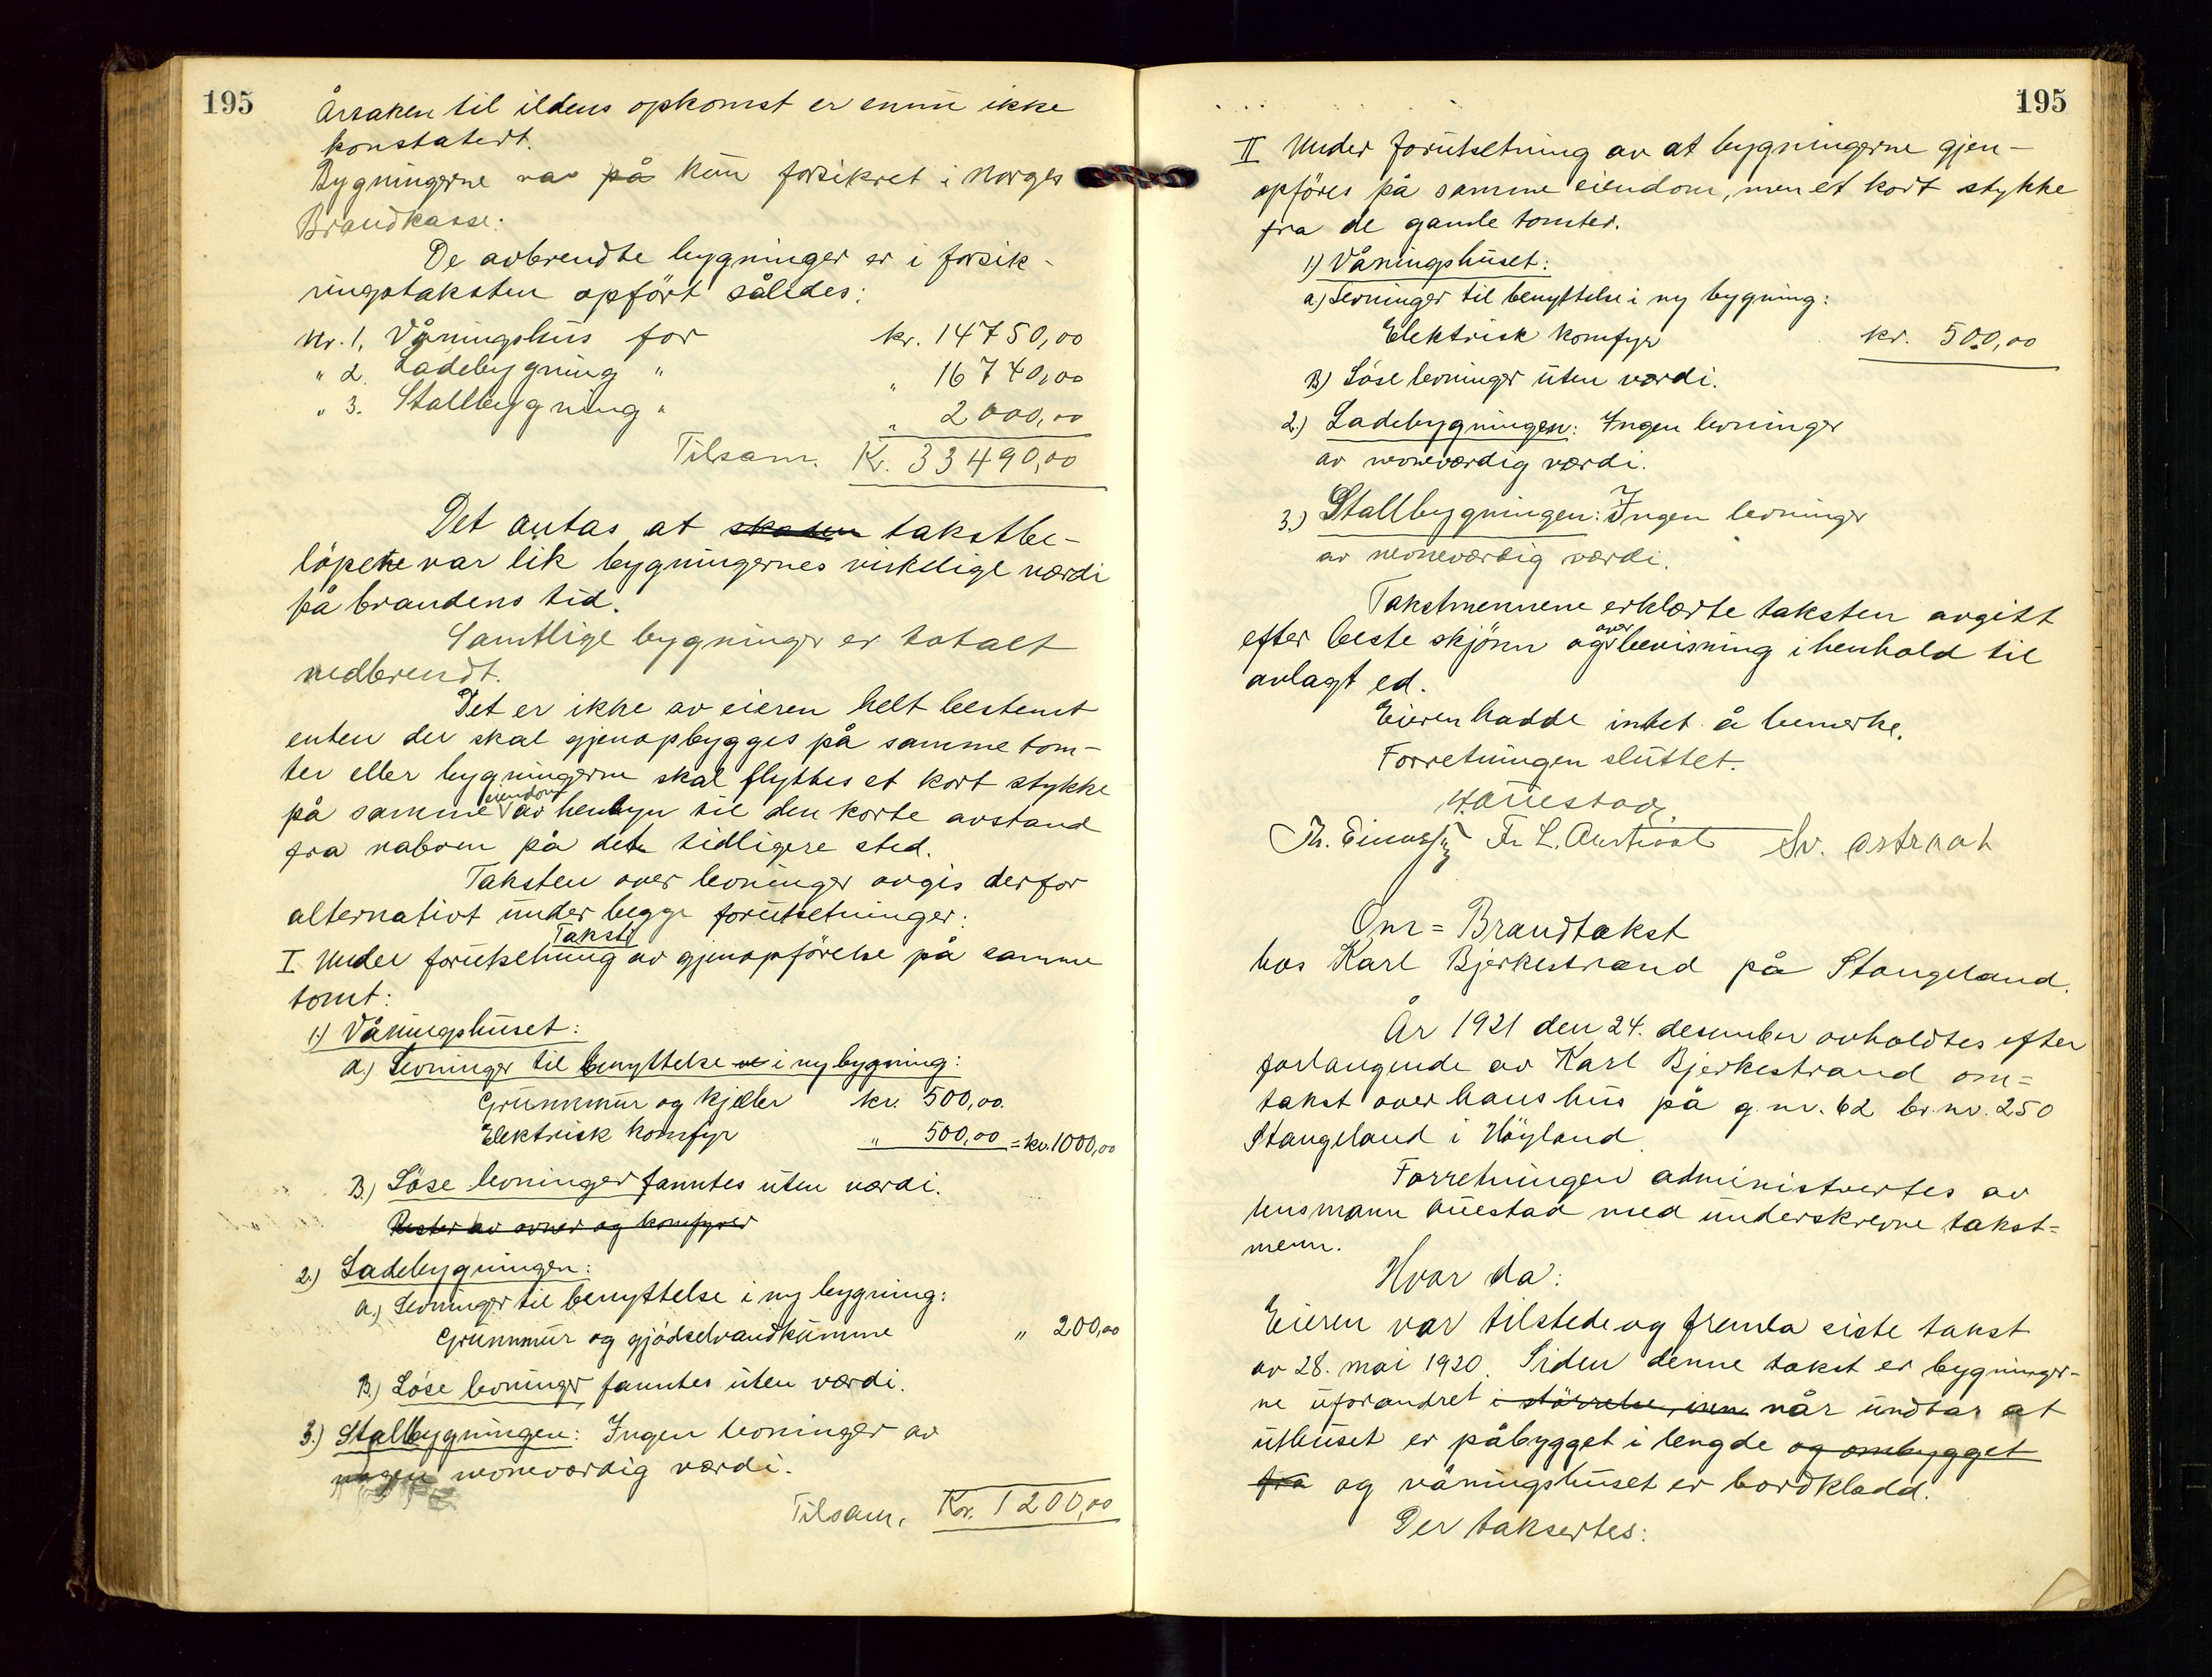 195
Årsaken til ildens opkomst er ennu ikke
konstatert.
Bygningerne var på kun forsikret i Norges
Brandkasse.
De avbrendte bygninger er i forsik-
ringstaksten opført således:
Nr. 1. Våningshus for kr. 14750,00
" 2. Ladebygning " " 16740,00
" 3. Stallbygning " " 2000,00
Tilsam. Kr. 33490,00
Det antas at skaden takstbe-
løpene var lik bygningernes virkelige værdi
på brandens tid.
Samtlige bygninger er totalt
nedbrendt.
Det er ikke av eieren helt bestemt
enten der skal gjenopbygges på samme tom-
ter eller bygningerne skal flyttes et kort stykke
på samme eiendom av hensyn til den korte avstand
fra naboen på det tidligere sted.
Taksten over levninger avgis derfor
alternativt under begge forutsetninger:
Takst
I Under forutsetning av gjenopførelse på samme
tomt:
1.) Våningshuset:
a.) Levninger til benyttelse ve i ny bygning:
Grunnmur og kjeller kr. 500,00
Elektrisk komfyr " 500,00 = kr. 1000,00
B.) Løse levninger fanntes uten værdi.
Rester av ovner og komfyrer
2.) Ladebygningen:
a.) Levninger til benyttelse i ny bygning:
Grunnmur og gjødselvandkumme " 200,00
B.) Løse levninger fanntes uten værdi.
3.) Stallbygningen: Ingen levninger av
nogen nevneværdig værdi.
Tilsam. Kr. 1200,00
195
II Under forutsetning av at bygningerne gjen-
opføres på samme eiendom, men et kort stykke
fra de gamle tomter.
1) Våningshuset:
a.) Levninger til benyttelse i ny bygning:
Elektrisk komfyr kr. 500,00
B) Løse levninger uten værdi.
2.) Ladebygningen: Ingen levninger
av nevneværdig værdi.
3.) Stallbygningen: Ingen levninger
av nevneværdig værdi.
Takstmennene erklærte taksten avgitt
efter beste skjønn og over bevisning i henhold til
avlagt ed.
Eieren hadde intet å bemerke.
Forretningen sluttet.
H. Auestad
Th. Fr. L. Sv. Østraat
Om = Brandtakst
hos Karl Bjerkestrand på Stangeland.
År 1921 den 24. desember avholdtes efter
forlangende av Karl Bjerkestrand om=
takst over hans hus på g.nr. 62 br.nr. 250
Stangeland i Høyland.
Forretningen administrertes av
lensmann Auestad med underskrevne takst=
menn.
Hvor da:
Eieren var tilstede og fremla siste takst
av 28. mai 1920. Siden denne takst er bygninger-
ne uforandret i størrelse, inn når undtas at
uthuset er påbygget i lengde og ombygget
fra og våningshuset er bordkledd.
Der taksertes: